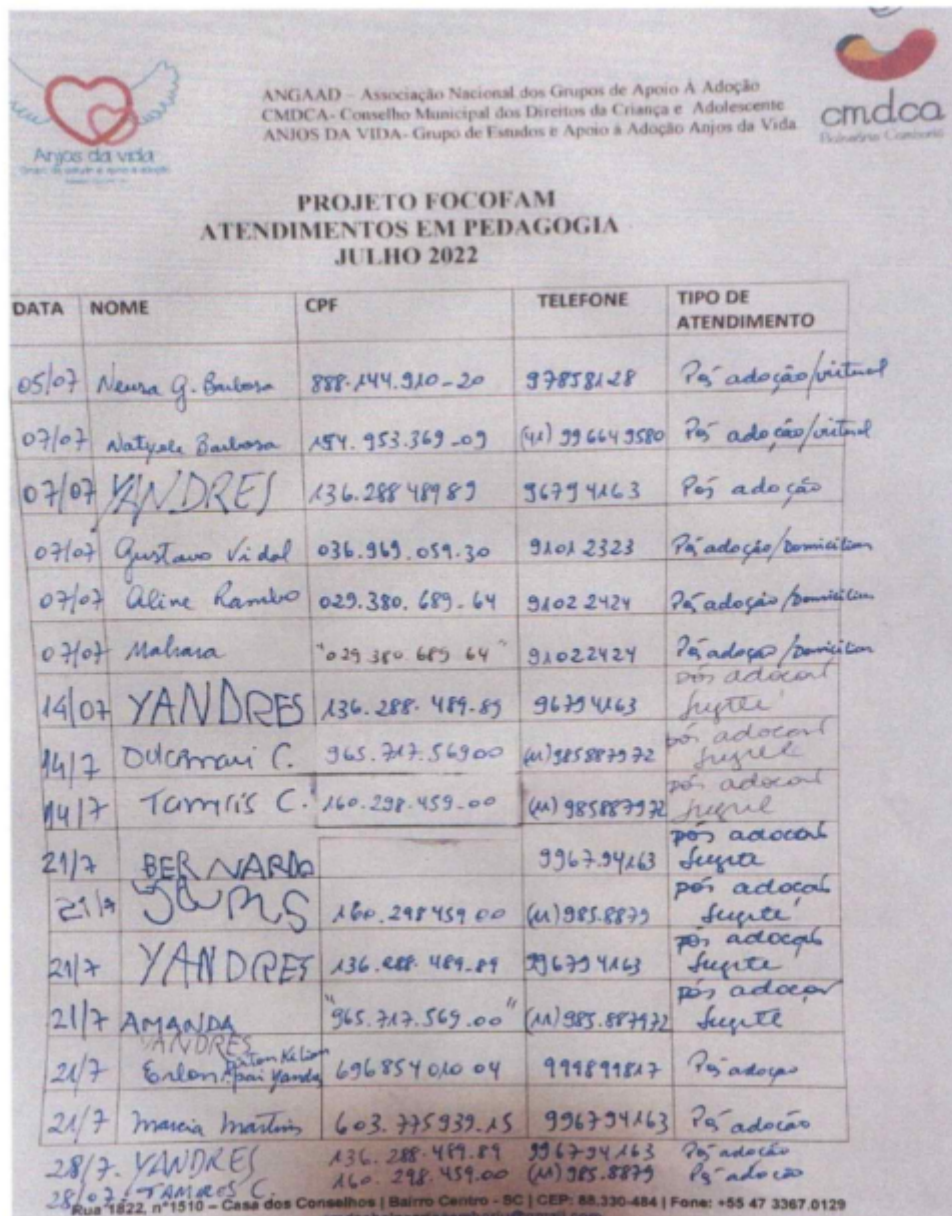 Anjos da vida
ANGAAD – Associação Nacional dos Grupos de Apoio À Adoção
CMDCA- Conselho Municipal dos Direitos da Criança e Adolescente
ANJOS DA VIDA- Grupo de Estudos e Apoio à Adoção Anjos da Vida
cmdca
Balneário Camboriú
PROJETO FOCOFAM
ATENDIMENTOS EM PEDAGOGIA
JULHO 2022
DATA NOME CPF TELEFONE TIPO DE ATENDIMENTO
05/07 Neusa G. Barbosa 888.144.910-20 97858128 Pós adoção/virtual
07/07 Natyele Barbosa 154.953.369-09 (41) 996649580 Pós adoção/virtual
07/07 YANDRES 136.288 48989 96794163 Pós adoção
07/07 Gustavo Vidal 036.969.059.30 9101 2323 Pós adoção/Domiciliar
07/07 Aline Rambo 029.380.689-64 91022424 Pós adoção/Domiciliar
07/07 "029 380 689 64" 91022424 Pós adoção/Domiciliar
14/07 YANDRES 136.288.489.89 96794163 pós adocar
14/7 C. 965.717.56900 (11)985887972 pós adocar
14/7 C. 160.298.459-00 (11) 985887972 pós adocar
21/7 BERNARDO 996794163 pós adocar
160.298459 00 (11)985.8879 pós adocar
21/7 YANDRES 136.288.489.89 996794163 pós adocar
21/7 AMANDA "965.717.569.00" (11)985.887972 pós adocar
YANDRES
21/7 Erlon pai 696854010 04 999899817 Pós adoção
21/7 Marcia Martins 603.775939.15 996794163 Pós adoção
28/7. YANDRES 136.288.489.89 996794163 Pós adoção
28/07. C. 160.298.459.00 (11)985.8879 Pós adoção
Rua 1822, n°1510 – Casa dos Conselhos | Bairro Centro - SC | CEP: 88.330-484 | Fone: +55 47 3367.0129